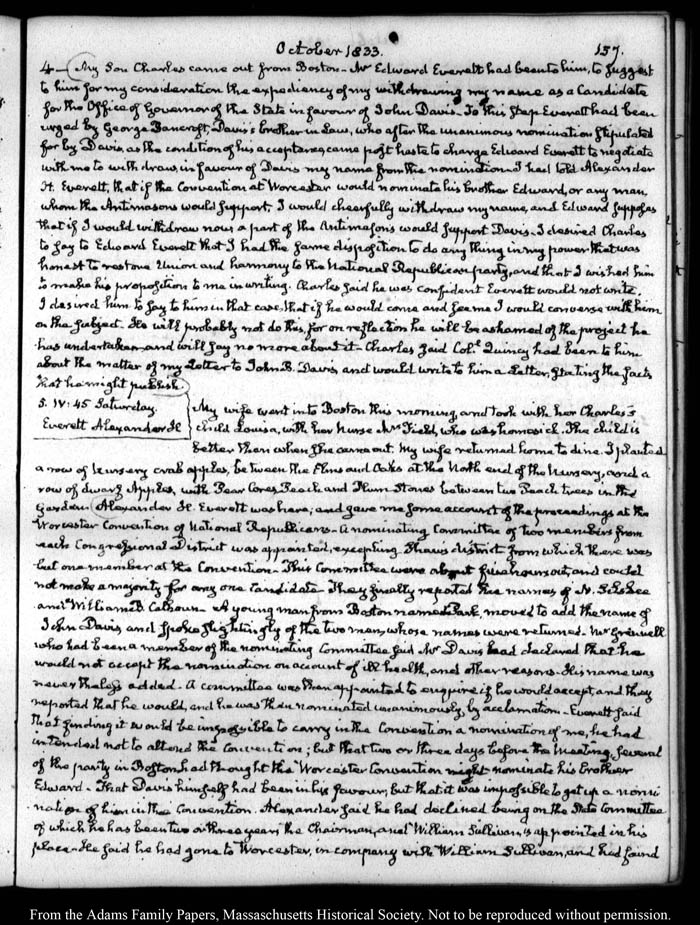 October 1833.
157.
4— My Son Charles came out from Boston— Mr Edward Everett had been to him, to suggest
to him for my consideration the expediency of my withdrawing my name as a Candidate
for the Office of Governor of the State in favour of John Davis— To this step Everett had been
urged by George Bancroft, Davis's brother in Law, who after the unanimous nomination stipulated
for by Davis, as the condition of his acceptance, came post haste to charge Edward Everett to negotiate
with me to withdraw, in favour of Davis my name from the nomination— I had told Alexander
H. Everett, that if the Convention at Worcester would nominate his brother Edward, or any man
whom the Antimasons would support, I would cheerfully withdraw my name, and Edward supposes
that if I would withdraw now a part of the Antimasons would support Davis— I desired Charles
to say to Edward Everett that I had the same disposition to do any thing in my power that was
honest to restore Union and harmony to the National Republican party, and that I wished him
to make his proposition to me in writing. Charles said he was confident Everett would not write.
I desired him to say to him in that case, that if he would come and see me I would converse with him
on the subject. He will probably not do this, for on reflection he will be ashamed of the project he
has undertaken, and will say no more about it— Charles said Col.ᵗ Quincy had been to him
about the matter of my Letter to John B. Davis, and would write to him a Letter, stating the facts
that he might publish.
5. IV:45 Saturday.
Everett Alexander H
My wife went into Boston this morning, and took with her Charles's
child Louisa, with her Nurse Mrs Field, who was homesick. The child is
better than when she came out. My wife returned home to dine. I planted
a row of Nursery crab apples, between the Elms and Oaks at the North end of the Nursery, and a
row of dwarf Apples, with Pear Cores, Peach and Plum Stones between two Peach trees in the
Garden— Alexander H. Everett was here, and gave me some account of the proceedings at the
Worcester Convention of National Republicans— A nominating Committee of two members from
each Congressional District was appointed, excepting Shaw's district from which there was
but one member at the Convention— This Committee were about five hours out, and could
not make a majority for any one Candidate— They finally reported the names of
and William B Calhoun— A young man from Boston named Park, moved to add the name of
John Davis, and spoke slightingly of the two men, whose names were returned— Mr Grennell
who had been a member of the nominating Committee said Mr Davis had declared that he
would not accept the nomination on account of ill health, and other reasons. His name was
nevertheless added— A committee was then appointed to enquire if he would accept, and they
reported that he would, and he was then nominated unanimously, by acclamation— Everett said
that finding it would be impossible to carry in the Convention a nomination of me, he had
intended not to attend the Convention; but that two or three days before the Meeting, several
of the party in Boston had thought the Worcester Convention might nominate his brother
Edward— That Davis himself had been in his favour, but that it was impossible to get up a nomi
nation of him in the Convention. Alexander said he had declined being on the State Committee
of which he has been two or three years the Chairman, and William Sullivan is appointed in his
place— He said he had gone to Worcester, in company with William Sullivan, and had found
From the Adams Family Papers, Massachusetts Historical Society. Not to be reproduced without permission.